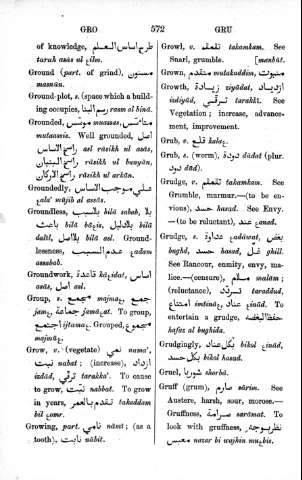 GRO 572 GRU
of knowledge, طرح اساس العلم
tarah asās ul ȩilm.
Ground (part. of grind), مسنون
masnūn.
Ground-plot, s. (space which a build-
ing occupies, رسم البنا rasm al binā.
Grounded, موسس muassas,
mutaassis. Well grounded,
اصل asl rāsikh ul asās,
راسخ البنيان rāsikh ul bunyān,
راسخ الاركان rāsikh ul arkān.
Groundedly, علي موجب الاساس
ȩala' mūjib al assās.
Groundless, بلاسبب bilā sabab, بلا
باعث bilā bāȩis, بلادليل bilā
dalīl, بلااصل bilā asl. Ground-
lessness, عدم السبب ȩadam
assabab.
Groundwork, قاعدة kāȩidat, اساس
asās, اصل asl.
Group, s. مجمع majmaȩ, جمع
jamȩ, جماعة jamaȩat. To group,
اجتمع ijtamaȩ. Grouped,
majmaȩ.
Grow, v. (vegetate) نمي nama',
نبت nabat; (increase), ازداد
izdād, ترقي tarakka'. To cause
to grow, نبت nabbat. To grow
in years, تقدم بالعمر takaddam
bil ȩomr.
Growing, part. نامي nāmī; (as a
tooth), نابت nābit.
Growl, v. تقمقم takamkam. See
Snarl, grumble. [manbūt.
Grown, متقدم mutakuddim, منبوت
Growth, زيادة ziyādat, ازدياد
izdiyād, ترقي tarakkī. See
Vegetation; increase, advance-
ment, improvement.
Grub, v. قلع kalaȩ.
Grub, s. (worm), دودة dūdat (plur.
دود dūd).
Grudge, v. تقمقم takamkam. See
Grumble, murmur.—(to be en-
vious), حسد hasad. See Envy.
—(to be reluctant), عند ȩanad.
Grudge, s. عداوة ȩadāwat, بغض
bughd, حسد hasad, غل ghill.
See Rancour, enmity, envy, ma-
lice.—(censure), ملام malām;
(reluctance), تردد taraddud,
امتناع imtināȩ, عناد ȩinād. To
entertain a grudge, حفظ البغضة
hafaz al bughida.
Grudgingly, بكل عناد bikol ȩinād,
بكل حسد bikol hasad.
Gruel, شوربا shorbā.
Gruff (grum), صارم sārim. See
Austere, harsh, sour, morose.—
Gruffness, صرامة sarāmat. To
look with gruffness, نظر بوجه
معبس nazar bi wajhin muȩbis.